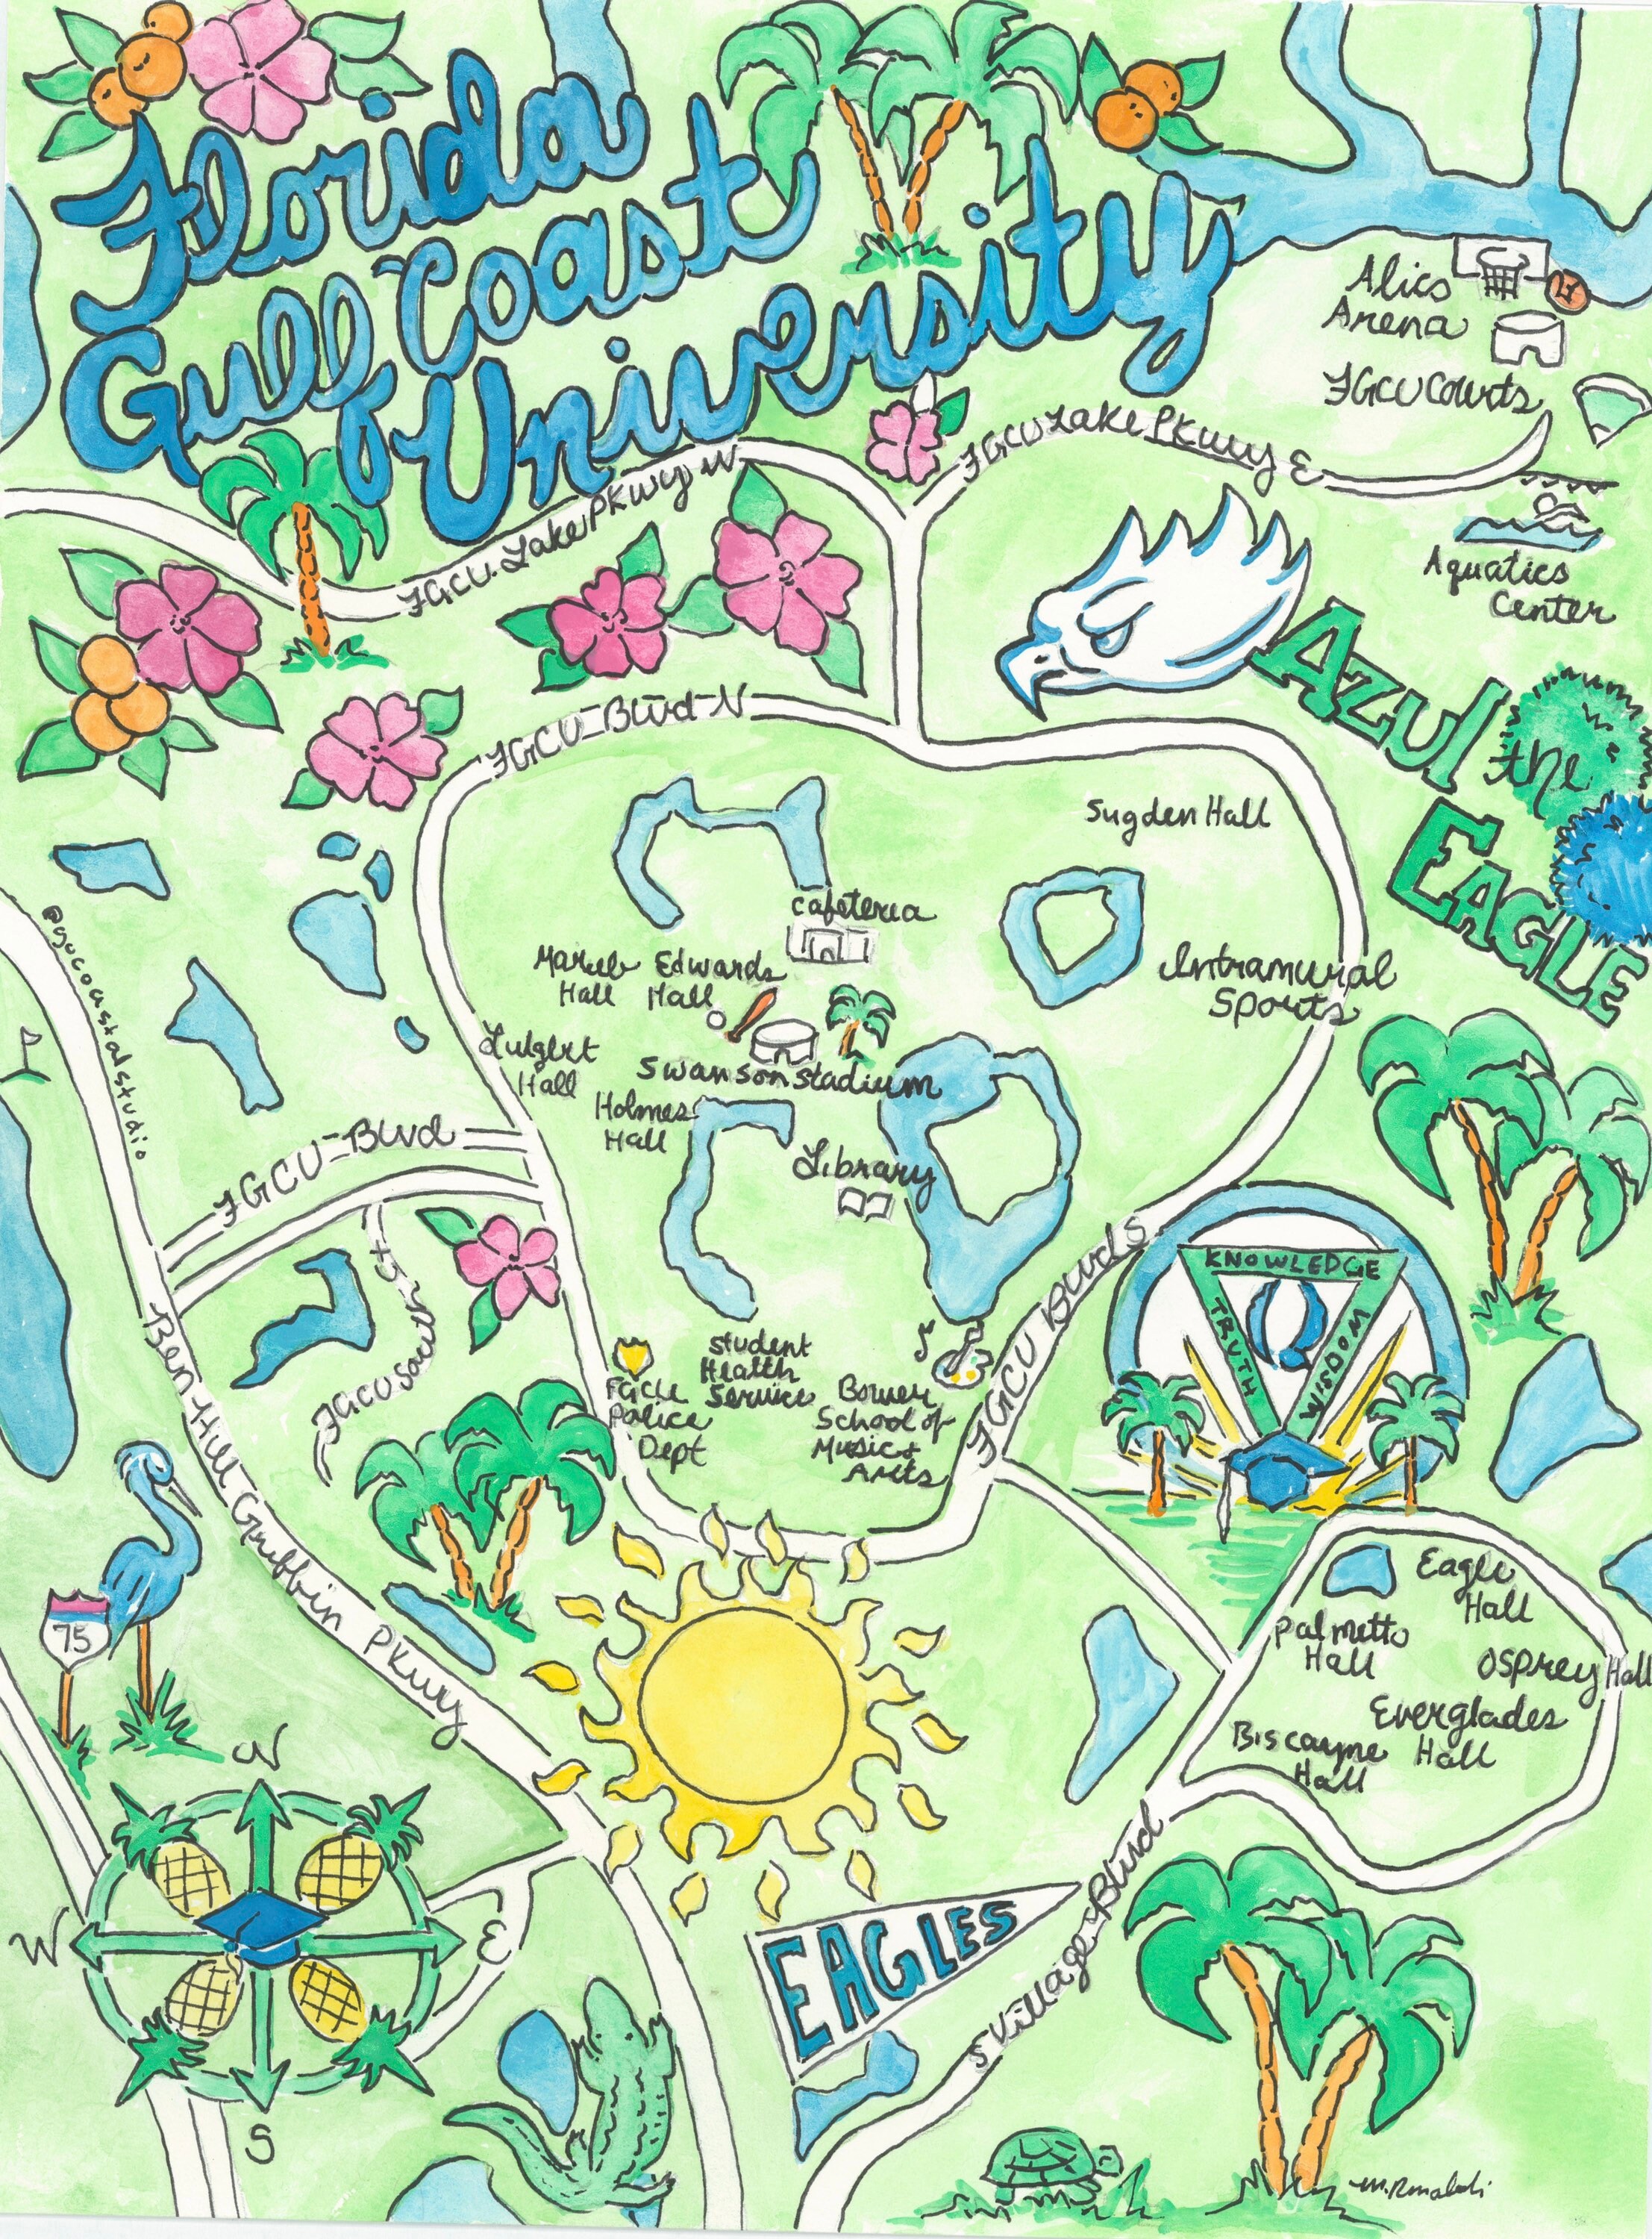 Florida
Gulf Coast
University
Alico
Arena
FGCU Courts
FGCU Lake Pkwy E
FGCU Lake Pkwy W
Aquatics
Center
AZUL
the
EAGLE
FGCU-Blvd-N
Sugden Hall
cafeteria
Marieb
Hall
Edwards
Hall
Intramural
Sports
Lutgert
Hall
Swanson Stadium
Holmes
Hall
Library
@gucoastalstudio
FGCU-Blvd
FGCU South St
FGCU Blvd S
KNOWLEDGE
TRUTH
WISDOM
Student
Health
Service
Police
Dept
Bower
School of
Music &
Arts
Ben-Hill Griffin Pkwy
75
Eagle
Hall
Palmetto
Hall
Osprey Hall
Everglades
Hall
Biscayne
Hall
N
W
E
S
EAGLES
S Village-Blvd